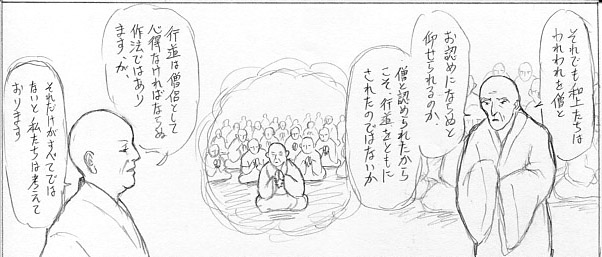 それでも和上たちは
われわれを僧と
お認めにならぬと
仰せられるのか、
僧と認められたから
こそ、行道をともに
されたのではないか
行道は僧侶として
心得なければならぬ
作法ではあり
ますが、
それだけがすべてでは
ないと私たちは考えて
おります